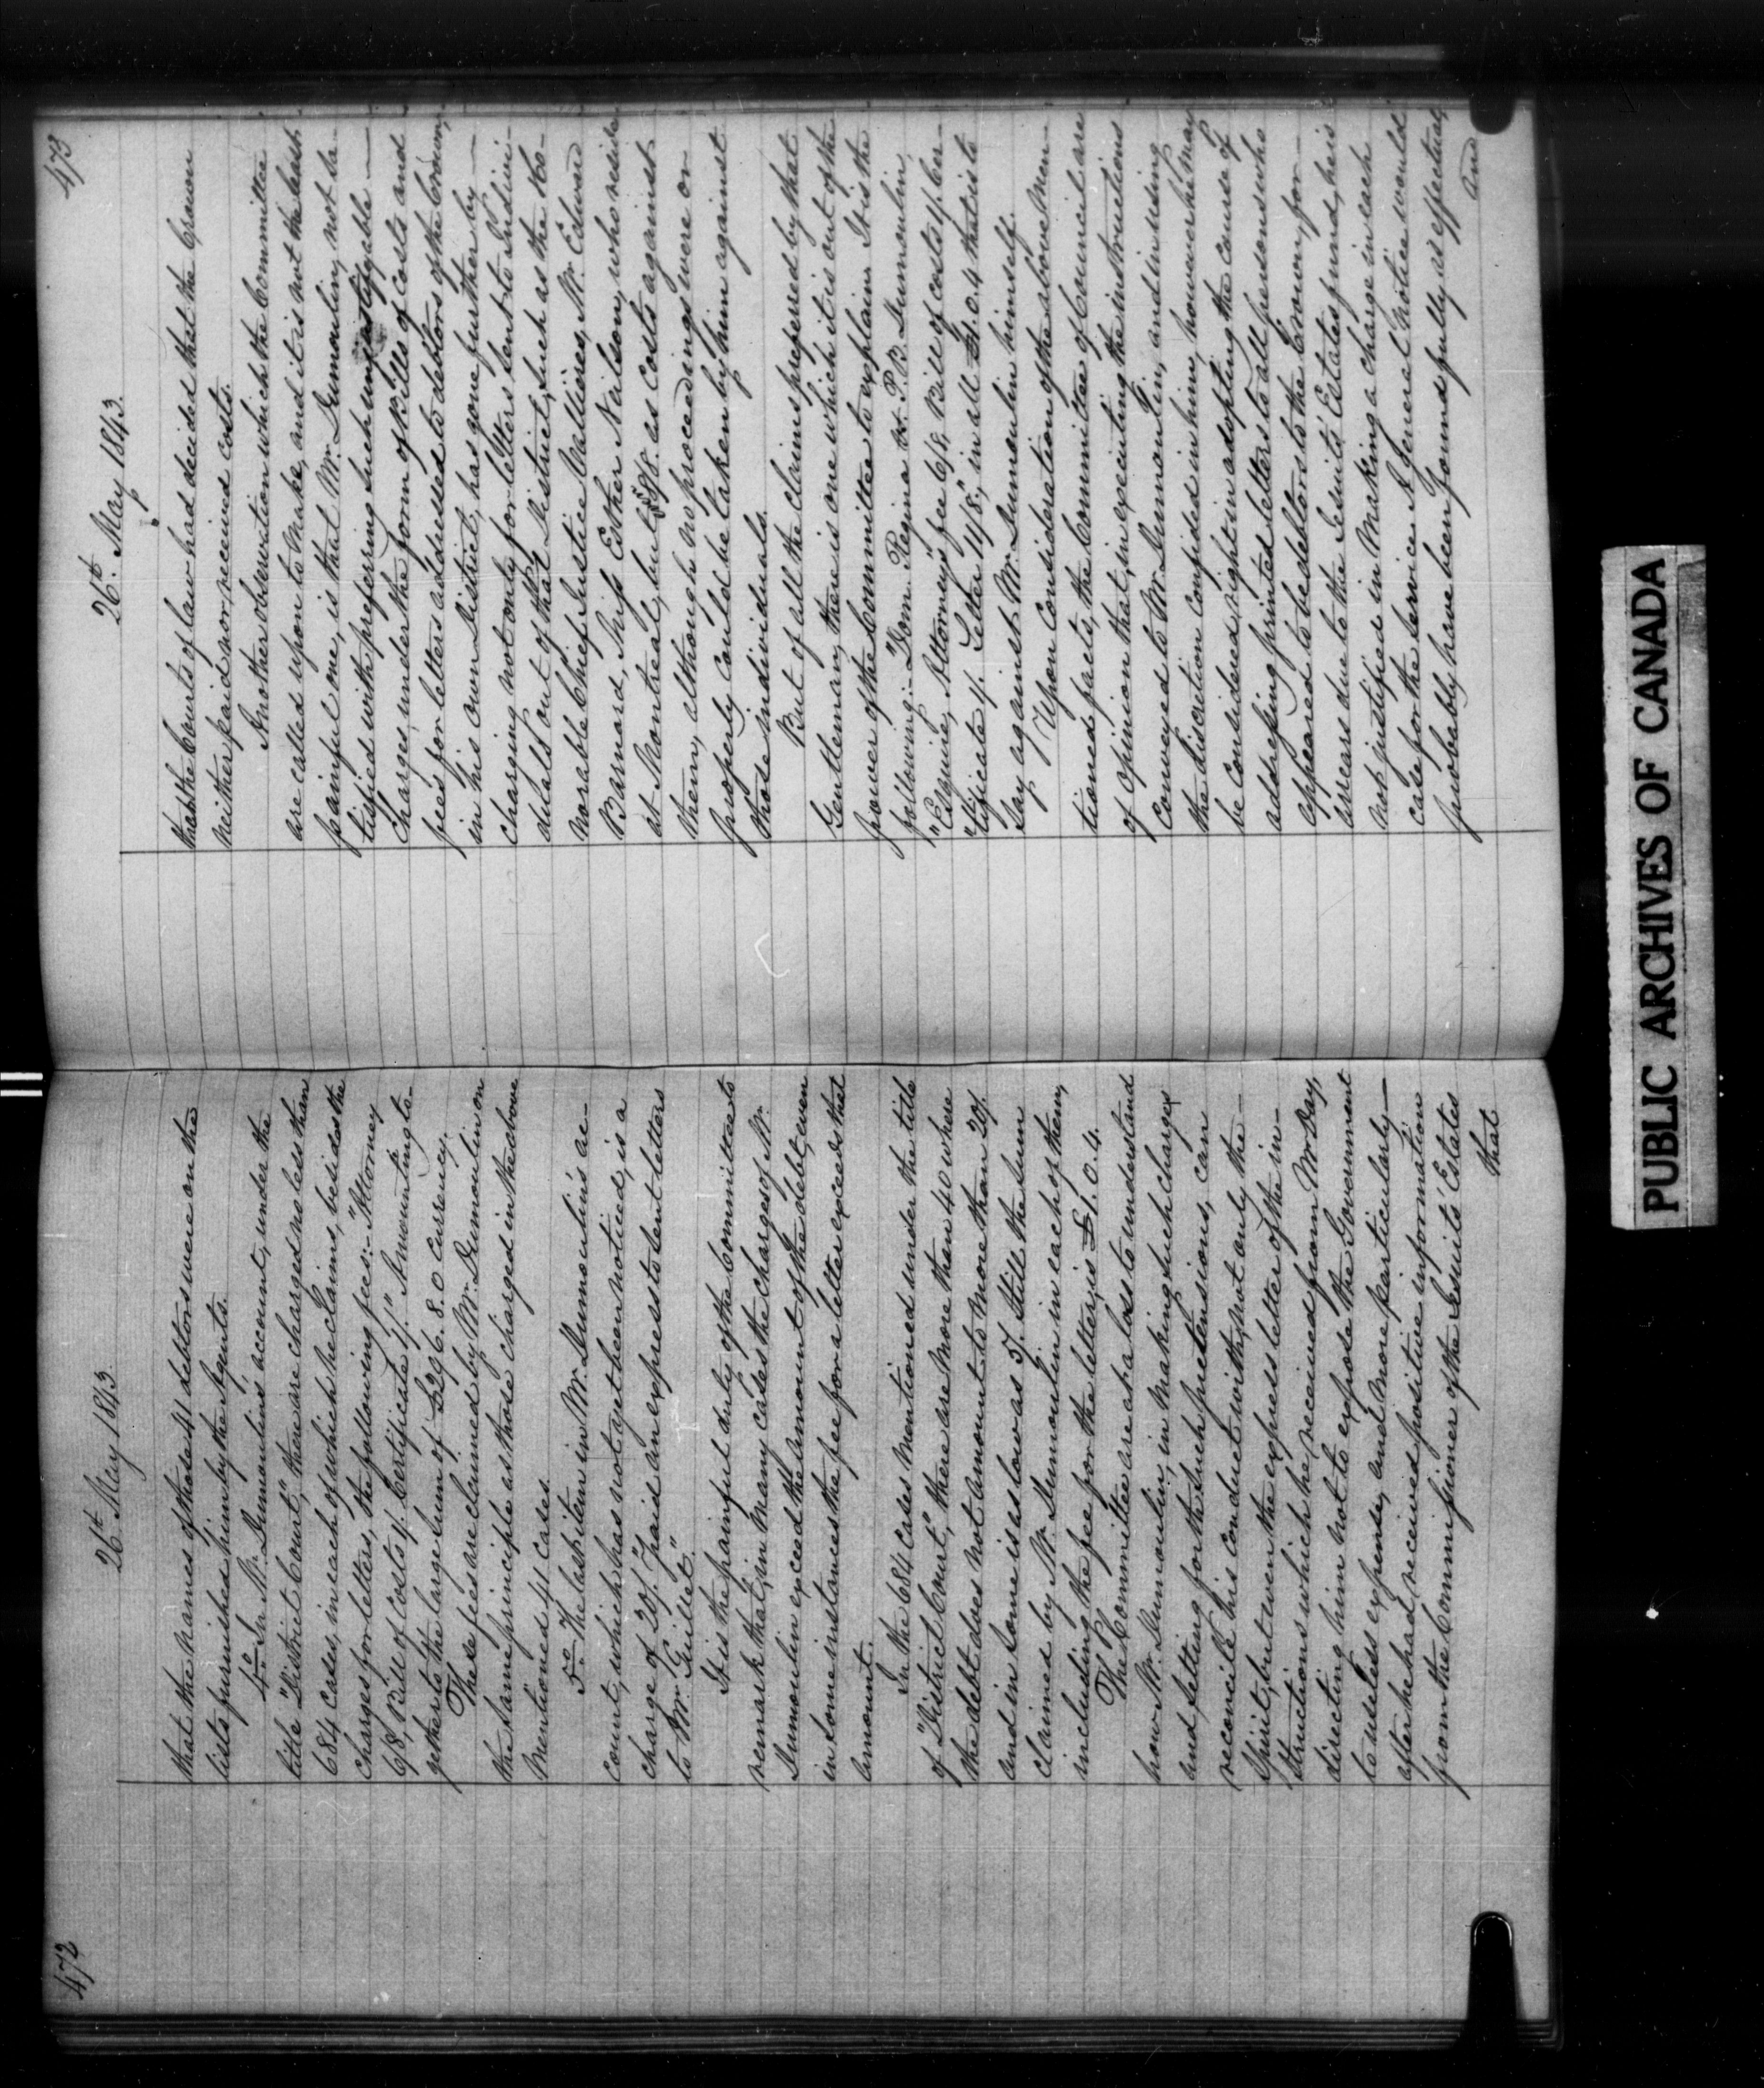 472
26th May 1843.
that the names of those 41 debtors were on the
lists furnished him by the Agents.
4o In Mr. Dumoulin's account, under the
title "District Court," there are charged no less than
684 cases, in each of which he claims, besides the
charges for letters, the following fees:- "Attorney
6/8, Bill of Costs 1/. Certificate 1/." Amounting to-
gether to the large sum of £296. 8. 0 Currency.
These fees are claimed by Mr. Dumoulin on
the same principle as those charged in the above
mentioned 41 cases.
5o The last item in Mr. Dumoulin's ac-
count, which has not yet been noticed, is a
charge of 20/. "paid an express to sent letters
to Mr. Guillet."
It is the painful duty of the Committee to
remark that, in many cases the charges of Mr.
Dumoulin exceed the amount of the debt, even
in some instances the fee for a letter exceeds that
amount.
In the 684 cases mentioned under the title
of "District Court," there are more than 40 where
the debt does not amount to more than 20/.
and in some is as low as 5/. Still the sum
claimed by Mr. Dumoulin in each of them,
including the fee for the letter, is £1. 0. 4.
The Committee are at a loss to understand
how Mr. Dumoulin, in making such charges
and setting forth such pretensions, can
reconcile his conduct with, not only the
Spirit, but even the express letter of the in-
structions which he received from Mr Day,
directing him not to expose the Government
to useless expense, and more particularly
after he had received positive information
from the Commissioner of the Jesuits' Estates
that
473
26th May 1843.
that the Courts of law had decided that the Crown
neither paid nor received costs.
Another observation which the Committee
are called upon to make, and it is not the least
painful one, is that Mr. Dumoulin, not sa-
tisfied with preferring such
charges, under the form of Bills of Costs and
fees for letters addressed to debtors of the Crown,
in his own District, has gone further by
charging not only for letters sent to Indivi-
duals out of that District, such as the Ho-
norable Chief Justice Vallières, Mr. Edward
Barnard, Miss Esther Neilson, who reside
at Montreal, but as Costs against
them, although no proceedings were or
properly could be taken by him against
those individuals.
But of all the claims preferred by that
Gentleman, there is one which it is out of the
power of the Committee to explain. It is the
following:- "Dom. Regina vs. P. B. Dumoulin,
"Esquire, Attorney's fee 6/8, Bill of costs 1/. Cer-
"tificate 1/. Letter 11/8," in all £1. 0. 4 that is to
say against Mr. Dumoulin himself.
Upon Consideration of the above men-
tioned facts, the Committee of Council are
of opinion that, in executing the instructions
conveyed to Mr. Dumoulin, and in using
the discretion confided in him, however he may
be considered right in adopting the course of
addressing printed letters to all persons who
appeared to be debtors to the Crown, for
arrears due to the Jesuits' Estates fund, he is
not justified in making a charge in each
case for the service. A general notice would
probably have been found fully as effectual,
and
PUBLIC ARCHIVES OF CANADA